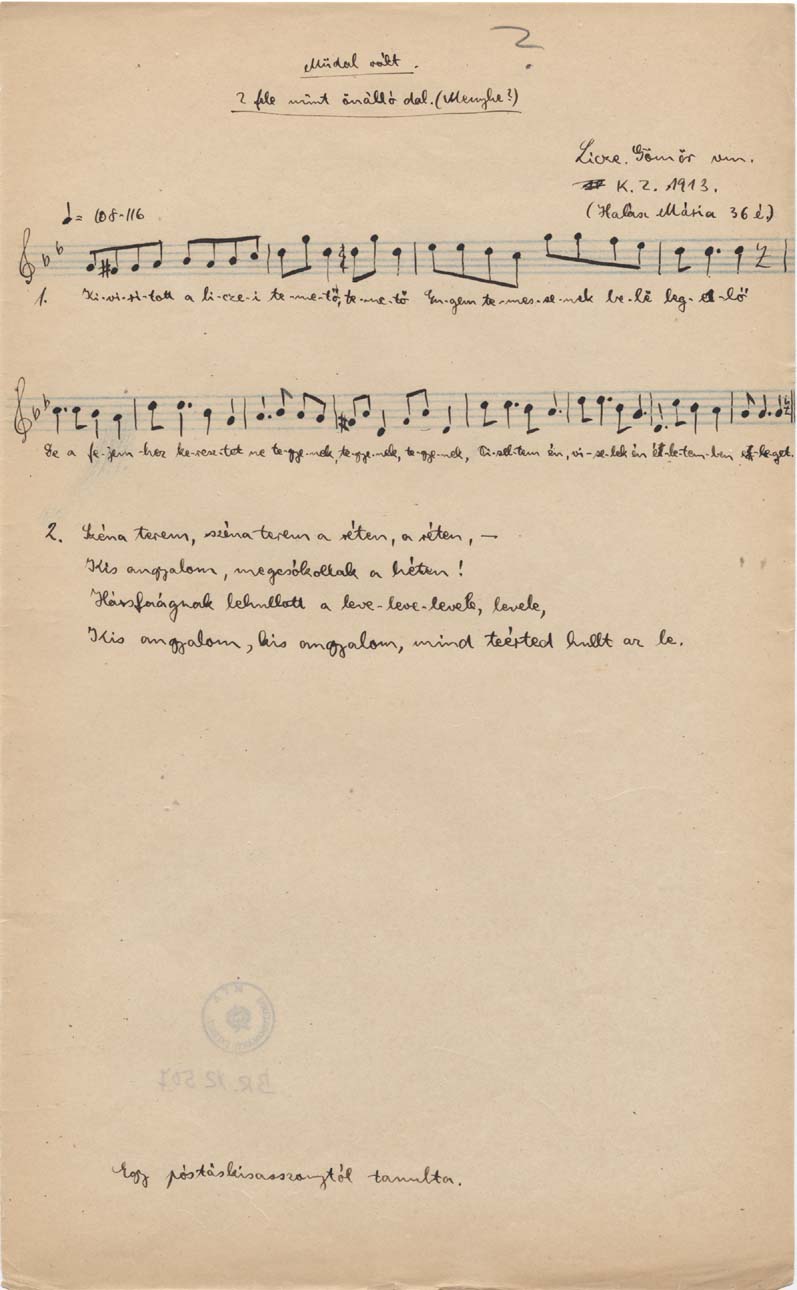 ?
Műdal vált.
2 fele mint önálló dal. (Menyhe?)
Licze. Gömör vm.
K. Z. 1913.
(Halász Mária 36 é.)
♩= 108-116
1. Ki-vi-rí-tott a li-cze-i te-me-tő, te-me-tő En-gem te-mes-se-nek be-lé leg-el-lő
De a fe-jem-hez ke-resz-tet ne te-gye-nek, te-gye-nek, te-gye-nek, Vi-sel-tem én, vi-se-lek én él-le-tem-ben e-le-get.
2. Széna terem, széna terem a réten, a réten, —
Kis angyalom, megcsókollak a héten!
Hársfaágnak lehullott a leve-leve-levele, levele,
Kis angyalom, kis angyalom, mind teérted hullt az le.
BR 12 507
Egy póstáskisasszonytól tanulta.